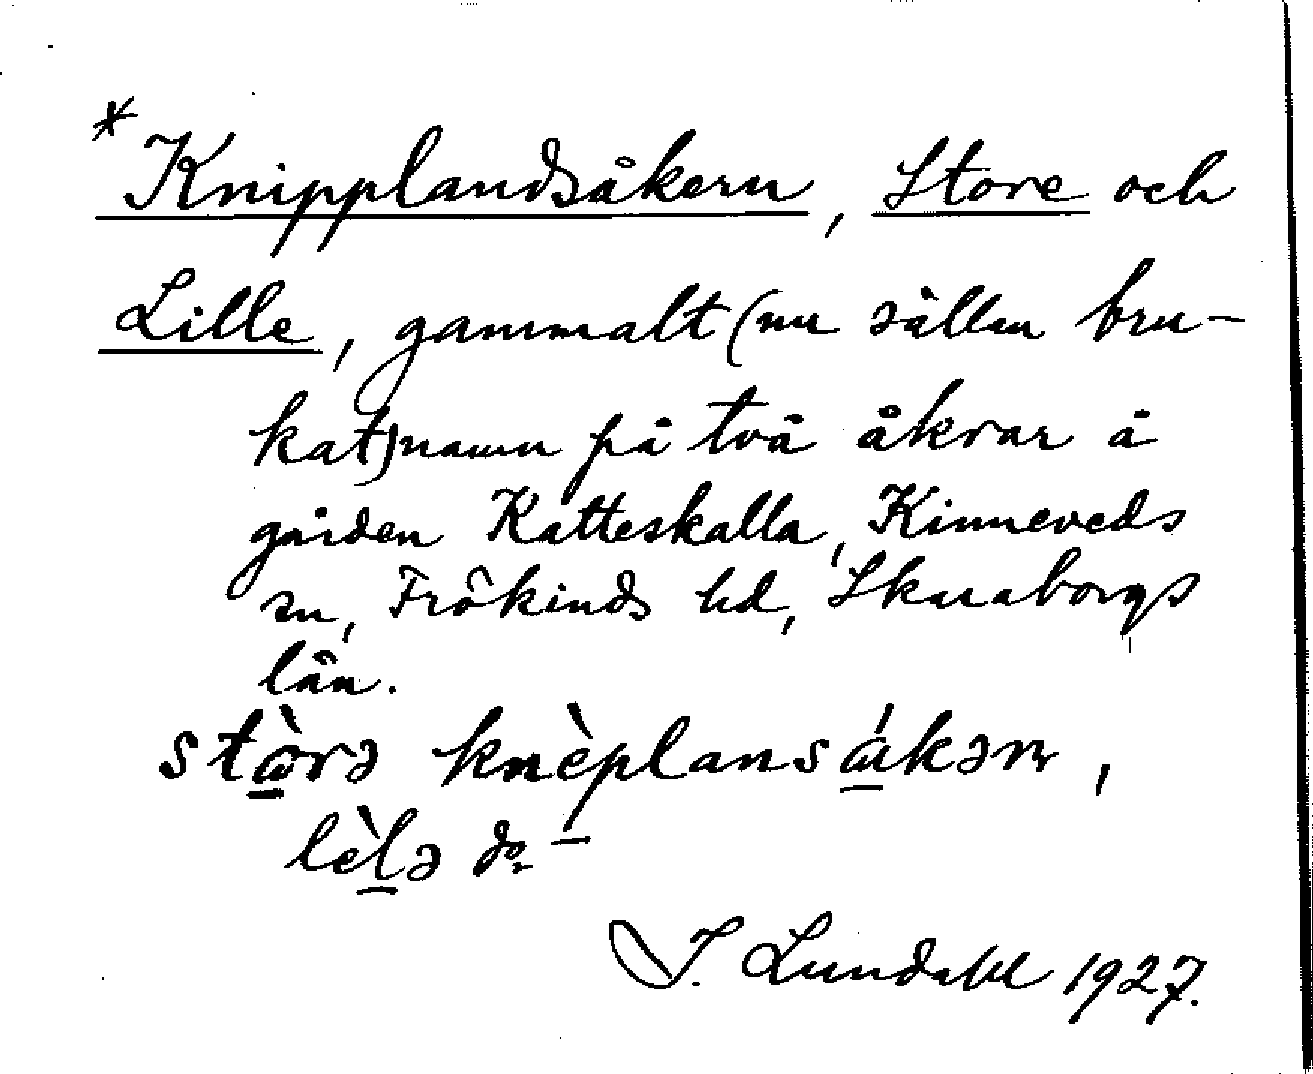 *Knipplandsåkern, Store och
Lille, gammalt (nu sällan bru-
kat) namn på två åkrar å
gården Katteskalla, Kinneveds
sn, Frökinds hd, Skaraborgs
län.
stɷ̀rə knèplansɷ́kəɳ,
lèlə do
I. Lundahl 1927.